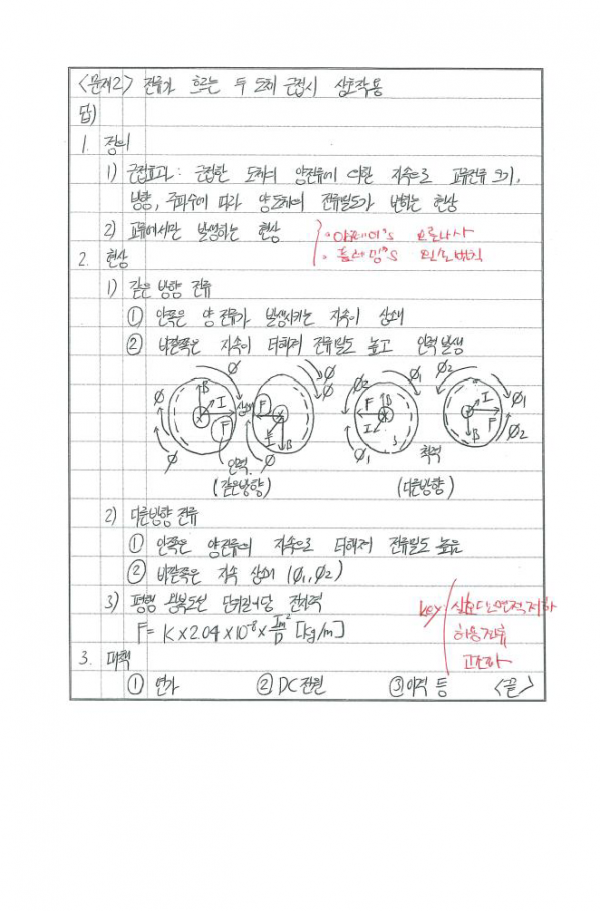 <문제2> 전류가 흐르는 두 도체 근접시 상호작용
답)
1. 정의
1) 근접효과: 근접한 도체의 양전류에 의한 자속으로 교류전류 크기,
방향, 주파수에 따라 양도체의 전류밀도가 변하는 현상
2) 교류에서만 발생하는 현상
· 암페어's 오른나사
· 플레밍's 왼손법칙
2. 현상
1) 같은 방향 전류
① 안쪽은 양 전류가 발생시키는 자속이 상쇄
② 바깥쪽은 자속이 더해져 전류밀도 높고 인력 발생
φ φ φ2 φ1 φ2
φ B I F 상쇄 F I B φ φ F B I φ1 I B F φ1 φ2
φ 인력 φ 척력
(같은방향) (다른방향)
2) 다른방향 전류
① 안쪽은 양전류의 자속으로 더해져 전류밀도 높음
② 바깥쪽은 자속 상쇄 (φ1, φ2)
3) 평행 왕복도선 단위길이당 전자력
F = K × 2.04 × 10⁻⁸ × Im²/D [kg/m]
key 실효단면적저하
허용전류
고조파
3. 대책
① 연가 ② DC 전원 ③ 이격 등 <끝>